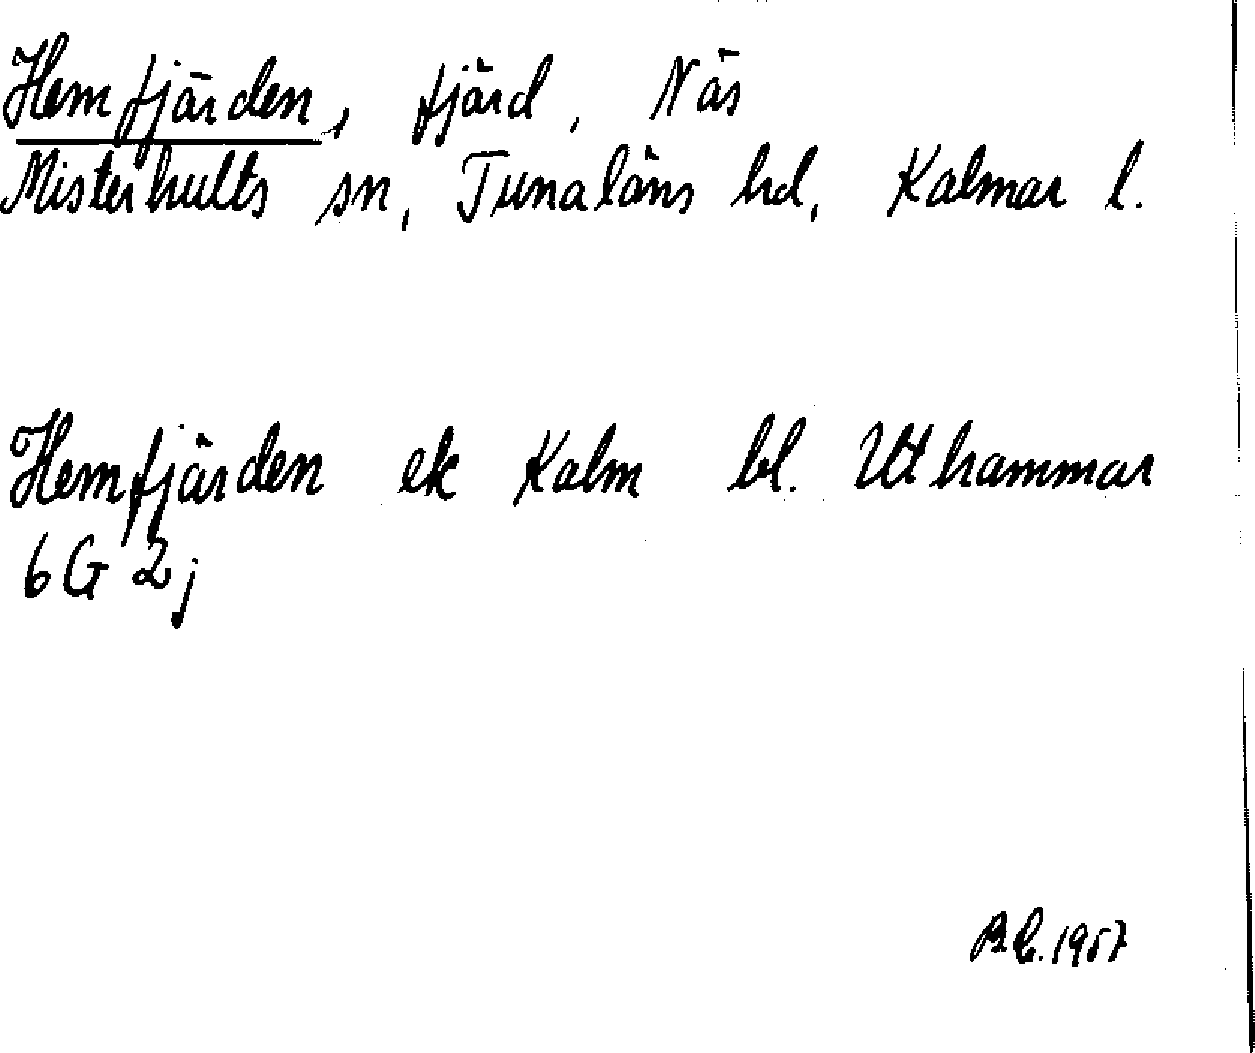 Hemfjärden, fjärd, Näs
Misterhults sn, Tunaläns hd, Kalmar l.
Hemfjärden ek Kalm bl. Uthammar
6 G 2 j
1957